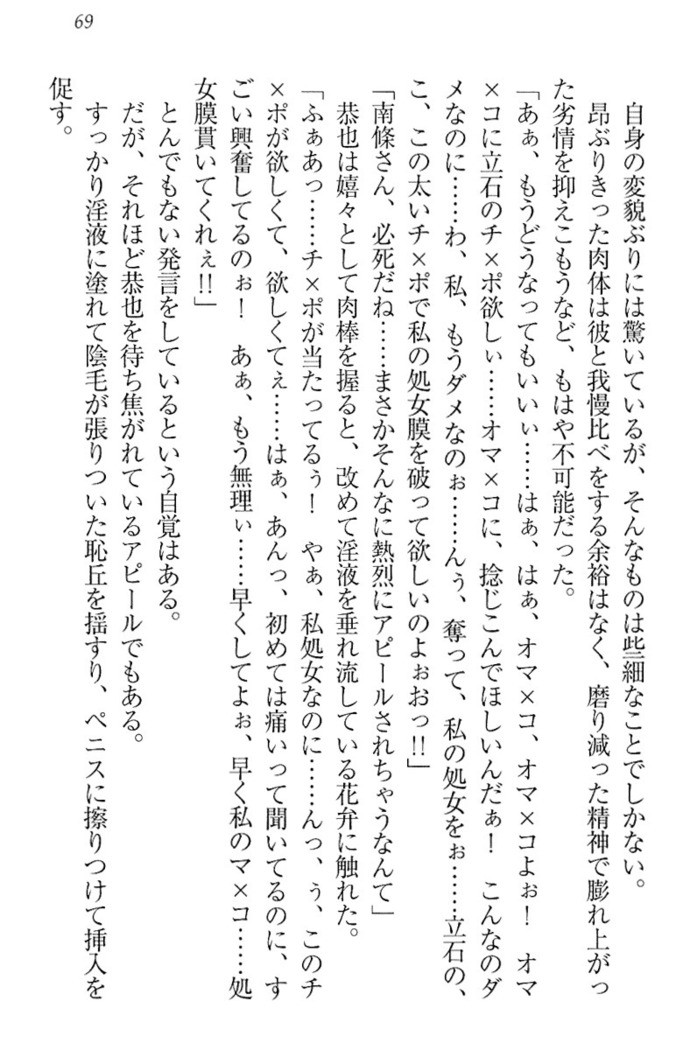 69
自身の変貌ぶりには驚いているが、そんなものは些細なことでしかない。
昂ぶりきった肉体は彼と我慢比べをする余裕はなく、磨り減った精神で膨れ上がっ
た劣情を抑えこもうなど、もはや不可能だった。
「あぁ、もうどうなってもいいぃ……はぁ、はぁ、オマ×コ、オマ×コよぉ！　オマ
×コに立石のチ×ポ欲しぃ……オマ×コに、捻じこんでほしいんだぁ！　こんなのダ
メなのに……わ、私、もうダメなのぉ……んぅ、奪って、私の処女をぉ……立石の、
こ、この太いチ×ポで私の処女膜を破って欲しいのよぉおっ!!」
「南條さん、必死だね……まさかそんなに熱烈にアピールされちゃうなんて」
恭也は嬉々として肉棒を握ると、改めて淫液を垂れ流している花弁に触れた。
「ふぁあっ……チ×ポが当たってるぅ！　やぁ、私処女なのに……んっ、ぅ、このチ
×ポが欲しくて、欲しくてぇ……はぁ、あんっ、初めては痛いって聞いてるのに、す
ごい興奮してるのぉ！　あぁ、もう無理ぃ……早くしてよぉ、早く私のマ×コ……処
女膜貫いてくれぇ!!」
とんでもない発言をしているという自覚はある。
だが、それほど恭也を待ち焦がれているアピールでもある。
すっかり淫液に塗れて陰毛が張りついた恥丘を揺すり、ペニスに擦りつけて挿入を
促す。